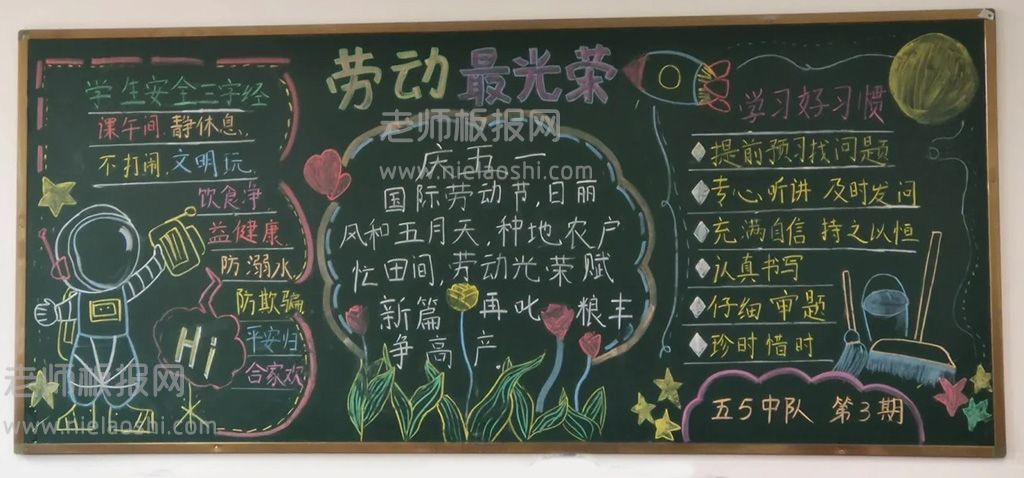 劳动最光荣
学生安全三字经
课午间,静休息,
不打闹,文明玩
饮食净
益健康
防溺水
防欺骗
平安归
合家欢
Hi
庆五一
国际劳动节,日丽
风和五月天,种地农户
忙田间,劳动光荣赋
新篇 再叱 粮丰
争高产.
学习好习惯
提前预习找问题
专心听讲 及时发问
充满自信 持之以恒
认真书写
仔细审题
珍时惜时
五5中队 第3期
老师板报网
www.nielaoshi.com
老师板报网
www.nielaoshi.com